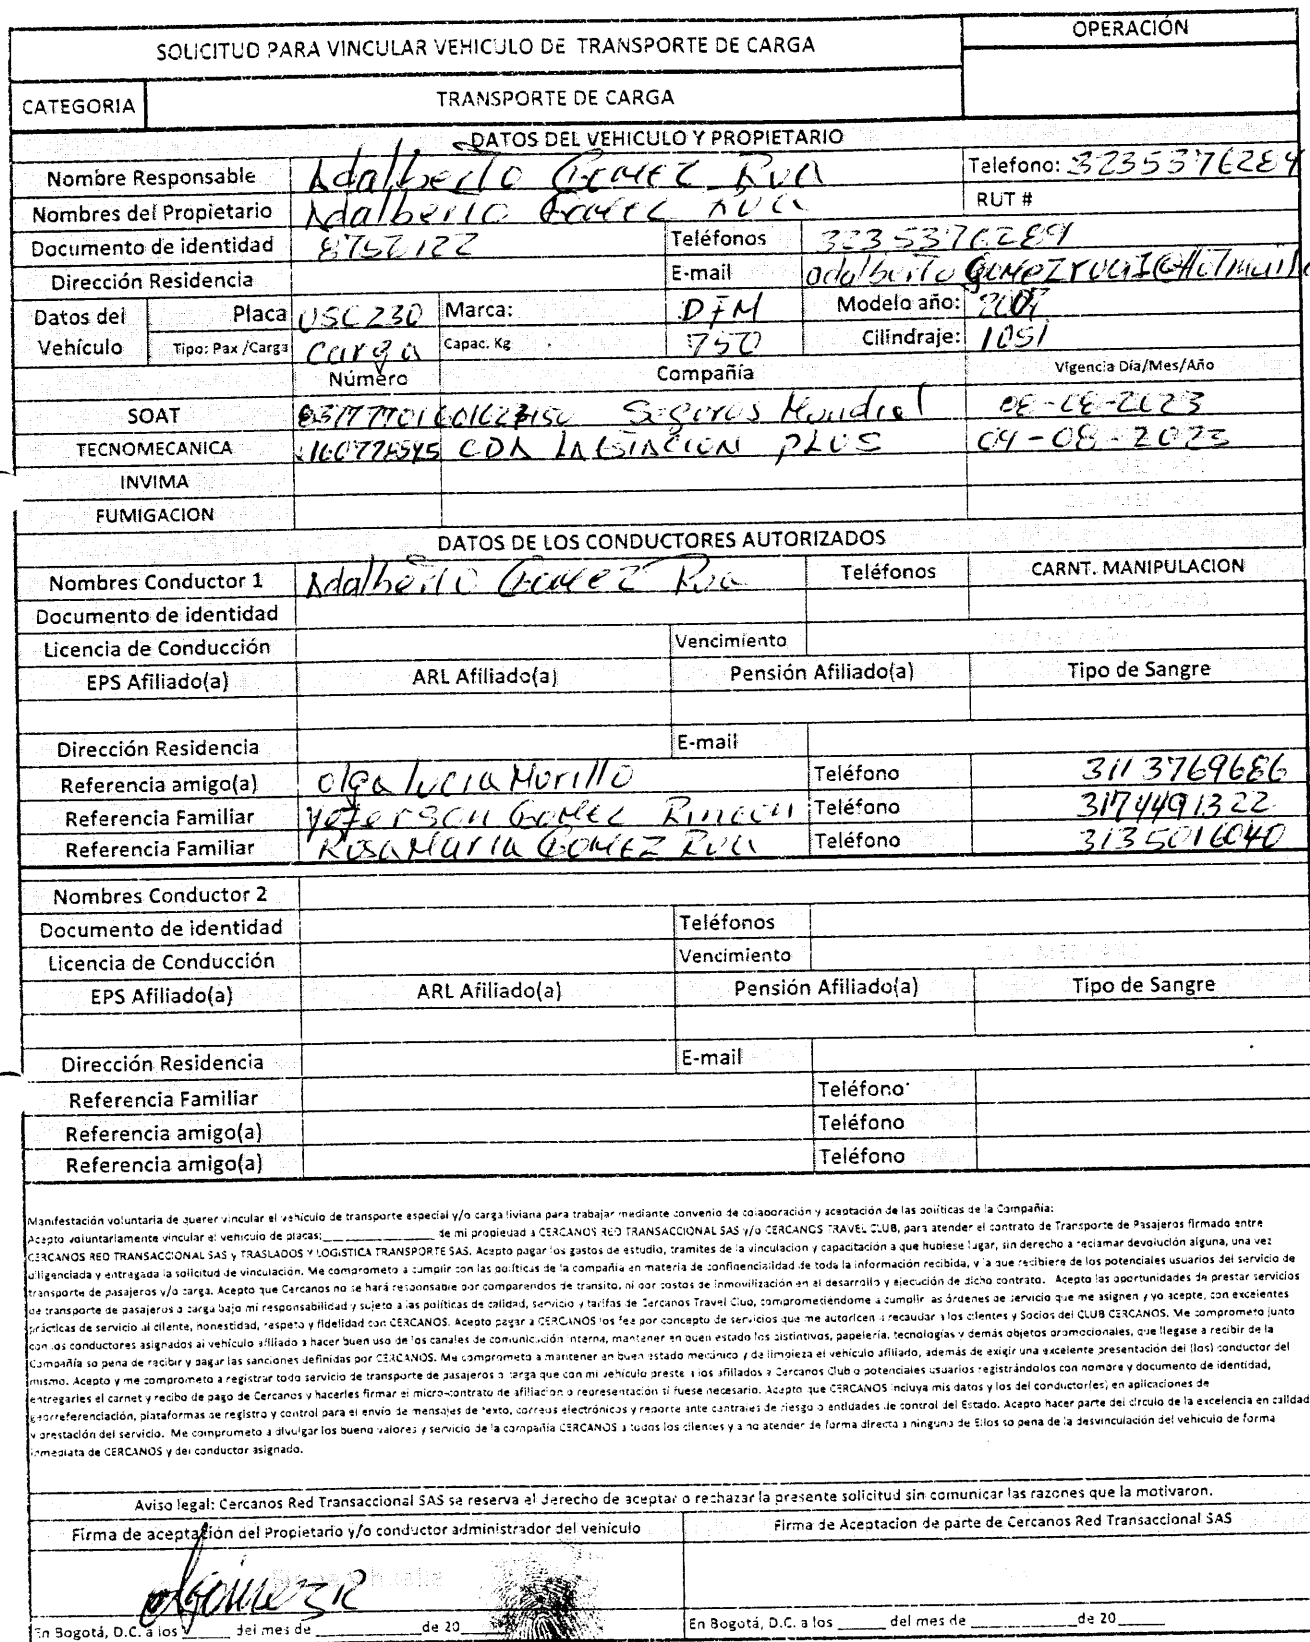 SOLICITUD PARA VINCULAR VEHICULO DE TRANSPORTE DE CARGA
OPERACIÓN
CATEGORIA
TRANSPORTE DE CARGA
DATOS DEL VEHICULO Y PROPIETARIO
Nombre Responsable Adalberto Gomez Rua Telefono: 3235376289
Nombres del Propietario Adalberto Gomez Rua RUT #
Documento de identidad 8752122 Teléfonos 3235376289
Dirección Residencia E-mail adalberto
Datos del Vehículo Placa USC230 Marca: DFM Modelo año:
Tipo: Pax /Carga Carga Capac. Kg 750 Cilindraje: 1051
Número Compañía Vigencia Día/Mes/Año
SOAT Seguros Mundial
TECNOMECANICA CDA PLUS 04-08-2023
INVIMA
FUMIGACION
DATOS DE LOS CONDUCTORES AUTORIZADOS
Nombres Conductor 1 Adalberto Gomez Rua Teléfonos CARNT. MANIPULACION
Documento de identidad
Licencia de Conducción Vencimiento
EPS Afiliado(a) ARL Afiliado(a) Pensión Afiliado(a) Tipo de Sangre
Dirección Residencia E-mail
Referencia amigo(a) Olga lucia Murillo Teléfono 3113769686
Referencia Familiar Yeferson Gomez Rincon Teléfono 3174491322
Referencia Familiar Rosa Maria GOMEZ Rua Teléfono 3135016040
Nombres Conductor 2
Documento de identidad Teléfonos
Licencia de Conducción Vencimiento
EPS Afiliado(a) ARL Afiliado(a) Pensión Afiliado(a) Tipo de Sangre
Dirección Residencia E-mail
Referencia Familiar Teléfono
Referencia amigo(a) Teléfono
Referencia amigo(a) Teléfono
Manifestación voluntaria de querer vincular el vehículo de transporte especial y/o carga liviana para trabajar mediante convenio de colaboración y aceptación de las políticas de la Compañía:
Acepto voluntariamente vincular el vehiculo de placas:____ de mi propiedad a CERCANOS RED TRANSACCIONAL SAS y/o CERCANOS TRAVEL CLUB, para atender el contrato de Transporte de Pasajeros firmado entre
CERCANOS RED TRANSACCIONAL SAS y TRASLADOS Y LOGISTICA TRANSPORTE SAS. Acepto pagar los gastos de estudio, tramites de la vinculacion y capacitación a que hubiese lugar, sin derecho a reclamar devolución alguna, una vez
diligenciada y entregada la solicitud de vinculación. Me comprometo a cumplir con las políticas de la compañía en materia de confidencialidad de toda la información recibida, y la que recibiere de los potenciales usuarios del servicio de
transporte de pasajeros y/o carga. Acepto que Cercanos no se hará responsable por comparendos de transito, ni por costos de inmovilización en el desarrollo y ejecución de dicho contrato. Acepto las oportunidades de prestar servicios
de transporte de pasajeros o carga bajo mi responsabilidad y sujeto a las políticas de calidad, servicio y tarifas de Cercanos Travel Club, comprometiéndome a cumplir las órdenes de servicio que me asignen y yo acepte, con excelentes
prácticas de servicio al cliente, honestidad, respeto y fidelidad con CERCANOS. Acepto pagar a CERCANOS los fee por concepto de servicios que me autoricen a recaudar a los clientes y Socios del CLUB CERCANOS. Me comprometo junto
con los conductores asignados al vehículo afiliado a hacer buen uso de los canales de comunicación interna, mantener en buen estado los distintivos, papelería, tecnologías y demás objetos promocionales, que llegase a recibir de la
Compañía so pena de recibir y pagar las sanciones definidas por CERCANOS. Me comprometo a mantener en buen estado mecánico y de limpieza el vehículo afiliado, además de exigir una excelente presentación del (los) conductor del
mismo. Acepto y me comprometo a registrar todo servicio de transporte de pasajeros o carga que con mi vehículo preste a los afiliados a Cercanos Club o potenciales usuarios registrándolos con nombre y documento de identidad,
entregarles el carnet y recibo de pago de Cercanos y hacerles firmar el micro-contrato de afiliacion o representación si fuese necesario. Acepto que CERCANOS incluya mis datos y los del conductor(es) en aplicaciones de
georreferenciación, plataformas de registro y control para el envío de mensajes de texto, correos electrónicos y reporte ante centrales de riesgo o entidades de control del Estado. Acepto hacer parte del circulo de la excelencia en calidad
y prestación del servicio. Me comprometo a divulgar los bueno valores y servicio de la compañía CERCANOS a todos los clientes y a no atender de forma directa a ninguno de Ellos so pena de la desvinculación del vehiculo de forma
inmediata de CERCANOS y del conductor asignado.
Aviso legal: Cercanos Red Transaccional SAS se reserva el derecho de aceptar o rechazar la presente solicitud sin comunicar las razones que la motivaron.
Firma de aceptación del Propietario y/o conductor administrador del vehículo
Firma de Aceptacion de parte de Cercanos Red Transaccional SAS
En Bogotá, D.C. a los ____ del mes de ____ de 20____
En Bogotá, D.C. a los ____ del mes de ____ de 20____